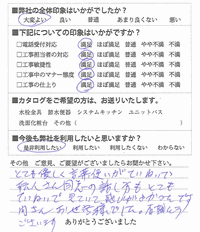 ■弊社の全体印象はいかがでしたか？
大変よい 良い 普通 あまり良くない 悪い
■下記についての印象はいかがですか？
□電話受付対応 満足 ほぼ満足 普通 やや不満 不満
□工事担当者の対応 満足 ほぼ満足 普通 やや不満 不満
□工事敏速性 満足 ほぼ満足 普通 やや不満 不満
□工事中のマナー態度 満足 ほぼ満足 普通 やや不満 不満
□工事の仕上り 満足 ほぼ満足 普通 やや不満 不満
■カタログをご希望の方は、お送りいたします。
水栓金具 節水便器 システムキッチン ユニットバス
洗面化粧台 その他（ ）
■今後も弊社を利用したいと思いますか？
是非利用したい 利用したい 利用したくない わからない
その他 ご意見、ご要望がございましたらお聞かせ下さい。
とても優しく言葉使いがていねいで
職人さん同志の話し方もとても
ていねいで見ていて感いがよかったです
ございます
ありがとうございました